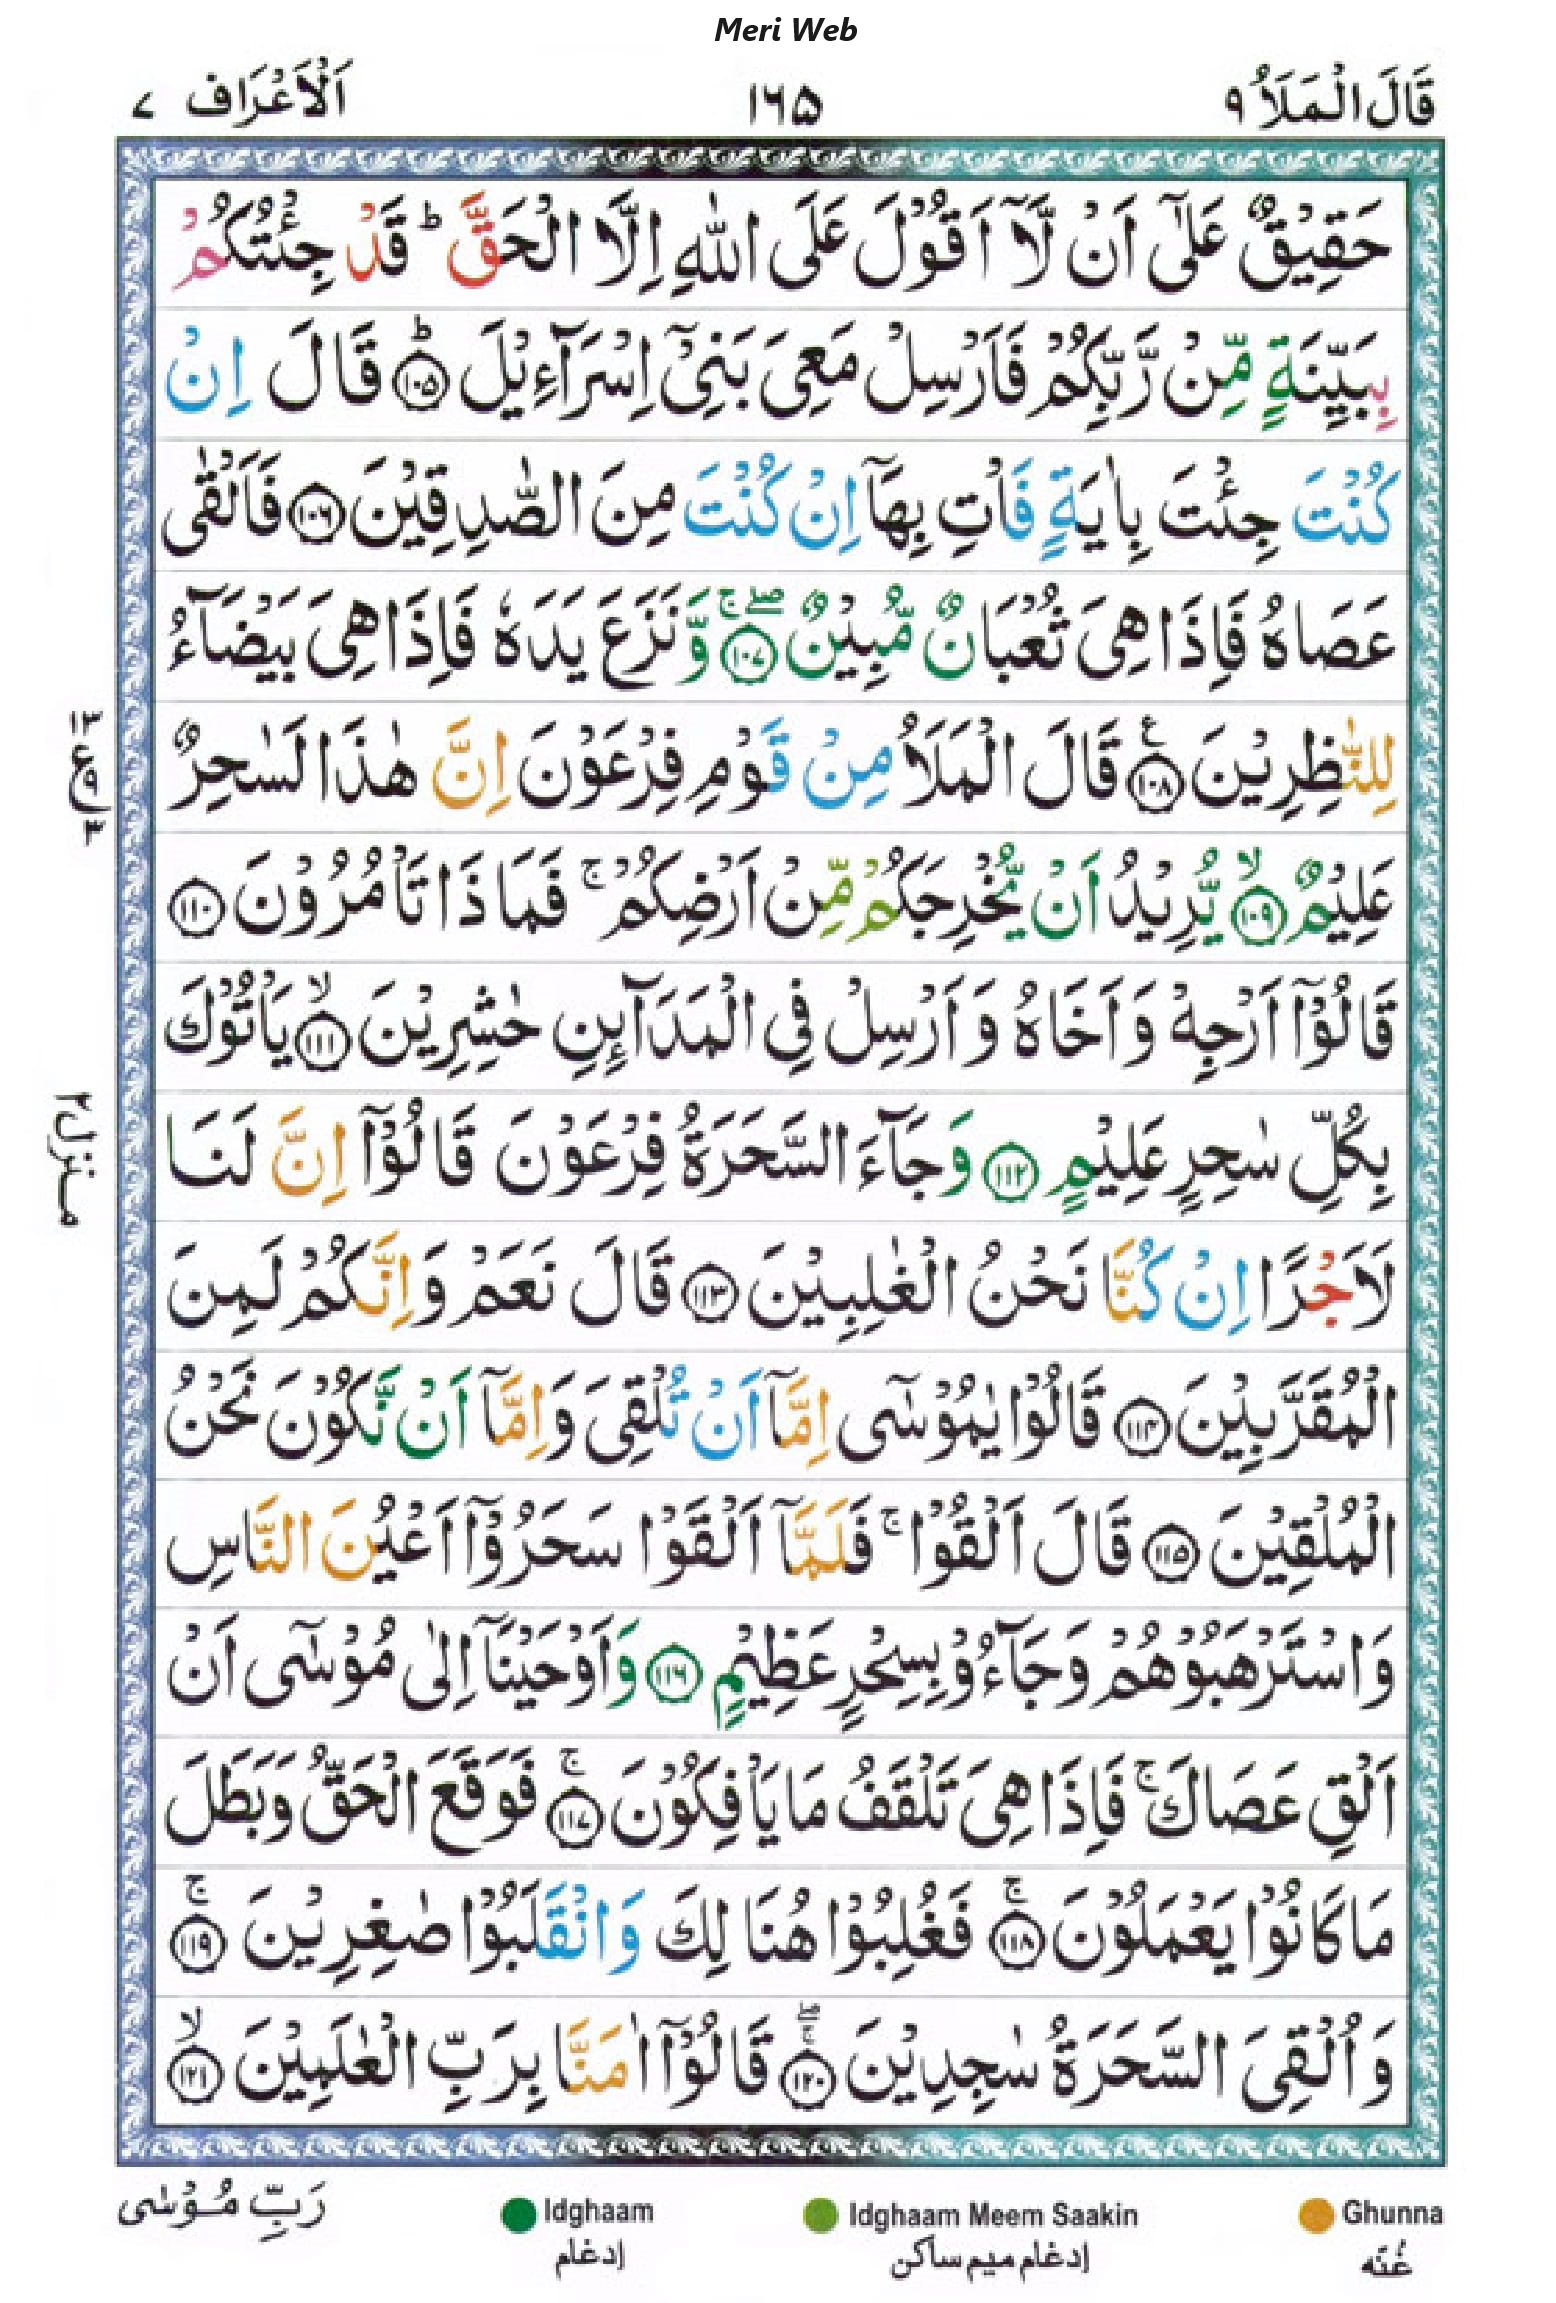 Meri Web
قَالَ الْمَلَاُ ٩
١٦٥
اَلْاَعْرَاف ٧
حَقِيْقٌ عَلٰٓى اَنْ لَّاۤ اَقُوْلَ عَلَى اللّٰهِ اِلَّا الْحَقَّ ؕ قَدْ جِئْتُكُمْ
بِبَيِّنَةٍ مِّنْ رَّبِّكُمْ فَاَرْسِلْ مَعِیَ بَنِیْۤ اِسْرَآءِيْلَ ؕ﴿١٠٥﴾ قَالَ اِنْ
كُنْتَ جِئْتَ بِاٰيَةٍ فَاْتِ بِهَاۤ اِنْ كُنْتَ مِنَ الصّٰدِقِيْنَ ﴿١٠٦﴾ فَاَلْقٰى
عَصَاهُ فَاِذَا هِیَ ثُعْبَانٌ مُّبِيْنٌ ۚۖ﴿١٠٧﴾ وَّ نَزَعَ يَدَهٗ فَاِذَا هِیَ بَيْضَآءُ
لِلنّٰظِرِيْنَ ﴿١٠٨﴾ ع قَالَ الْمَلَاُ مِنْ قَوْمِ فِرْعَوْنَ اِنَّ هٰذَا لَسٰحِرٌ
عَلِيْمٌ ۙ﴿١٠٩﴾ يُّرِيْدُ اَنْ يُّخْرِجَكُمْ مِّنْ اَرْضِكُمْ ۚ فَمَا ذَا تَاْمُرُوْنَ ﴿١١٠﴾
قَالُوْۤا اَرْجِهْ وَ اَخَاهُ وَ اَرْسِلْ فِی الْمَدَآئِنِ حٰشِرِيْنَ ۙ﴿١١١﴾ يَاْتُوْكَ
بِكُلِّ سٰحِرٍ عَلِيْمٍ ﴿١١٢﴾ وَ جَآءَ السَّحَرَةُ فِرْعَوْنَ قَالُوْۤا اِنَّ لَنَا
لَاَجْرًا اِنْ كُنَّا نَحْنُ الْغٰلِبِيْنَ ﴿١١٣﴾ قَالَ نَعَمْ وَ اِنَّكُمْ لَمِنَ
الْمُقَرَّبِيْنَ ﴿١١٤﴾ قَالُوْا يٰمُوْسٰۤى اِمَّاۤ اَنْ تُلْقِیَ وَ اِمَّاۤ اَنْ نَّكُوْنَ نَحْنُ
الْمُلْقِيْنَ ﴿١١٥﴾ قَالَ اَلْقُوْا ۚ فَلَمَّاۤ اَلْقَوْا سَحَرُوْۤا اَعْيُنَ النَّاسِ
وَ اسْتَرْهَبُوْهُمْ وَ جَآءُوْ بِسِحْرٍ عَظِيْمٍ ﴿١١٦﴾ وَ اَوْحَيْنَاۤ اِلٰى مُوْسٰۤى اَنْ
اَلْقِ عَصَاكَ ۚ فَاِذَا هِیَ تَلْقَفُ مَا يَاْفِكُوْنَ ۚ﴿١١٧﴾ فَوَقَعَ الْحَقُّ وَ بَطَلَ
مَا كَانُوْا يَعْمَلُوْنَ ۚ﴿١١٨﴾ فَغُلِبُوْا هُنَا لِكَ وَ انْقَلَبُوْا صٰغِرِيْنَ ۚ﴿١١٩﴾
وَ اُلْقِیَ السَّحَرَةُ سٰجِدِيْنَ ۚۖ﴿١٢٠﴾ قَالُوْۤا اٰمَنَّا بِرَبِّ الْعٰلَمِيْنَ ۙ﴿١٢١﴾
١٣
ع ٩
٣
منزل ٢
رَبِّ مُوْسٰى
Idghaam
إدغام
Idghaam Meem Saakin
إدغام ميم ساكن
Ghunna
غُنَّه